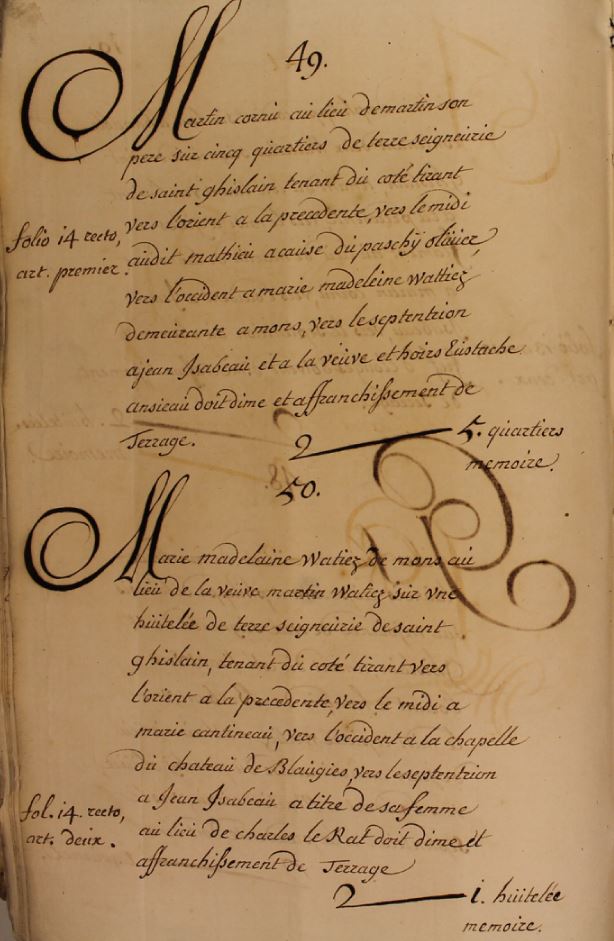 49.
Martin cornu au lieu de martin son
pere sur cincq quartiers de terre seigneurie
de saint ghislain tenant du coté tirant
vers l'orient a la precedente, vers le midi
folio 14 recto,
art. premier.
audit mathieu a cause du paschÿ olivier,
vers l'occident a marie madeleine Wattiez
demeurante a mons, vers le septentrion
a jean Isabeau et a la veuve et hoirs Eustache
ansieau doit dime et affranchissement de
Terrage.
5. quartiers
memoire.
50.
Marie madelaine Watiez de mons au
lieu de la veuve martin Watiez sur une
huitelée de terre seigneurie de saint
ghislain, tenant du coté tirant vers
l'orient a la precedente, vers le midi a
marie cantineau, vers l'occident a la chapelle
du chateau de Blaugies, vers le septentrion
fol. 14. recto,
art. deux.
a Jean Isabeau a titre de sa femme
au lieu de charles le Rat doit dime et
affranchissement de Terrage
1. huitelée
memoire.